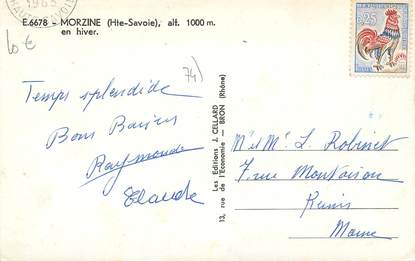 1963
E.6678 - MORZINE (Hte-Savoie), alt. 1000 m.
en hiver.
10 €
74)
0,25
Temps splendide
Bons Baisers
Raymonde
Claude
Les Editions J. CELLARD
13, rue de l'Economie - BRON (Rhône)
Mr et Me L. Robinet
7, rue Montoison
Reims
Marne